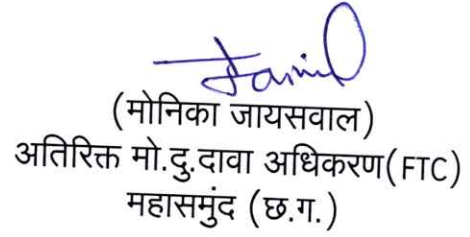 (मोनिका जायसवाल)
अतिरिक्त मो.दु.दावा अधिकरण(FTC)
महासमुंद (छ.ग.)